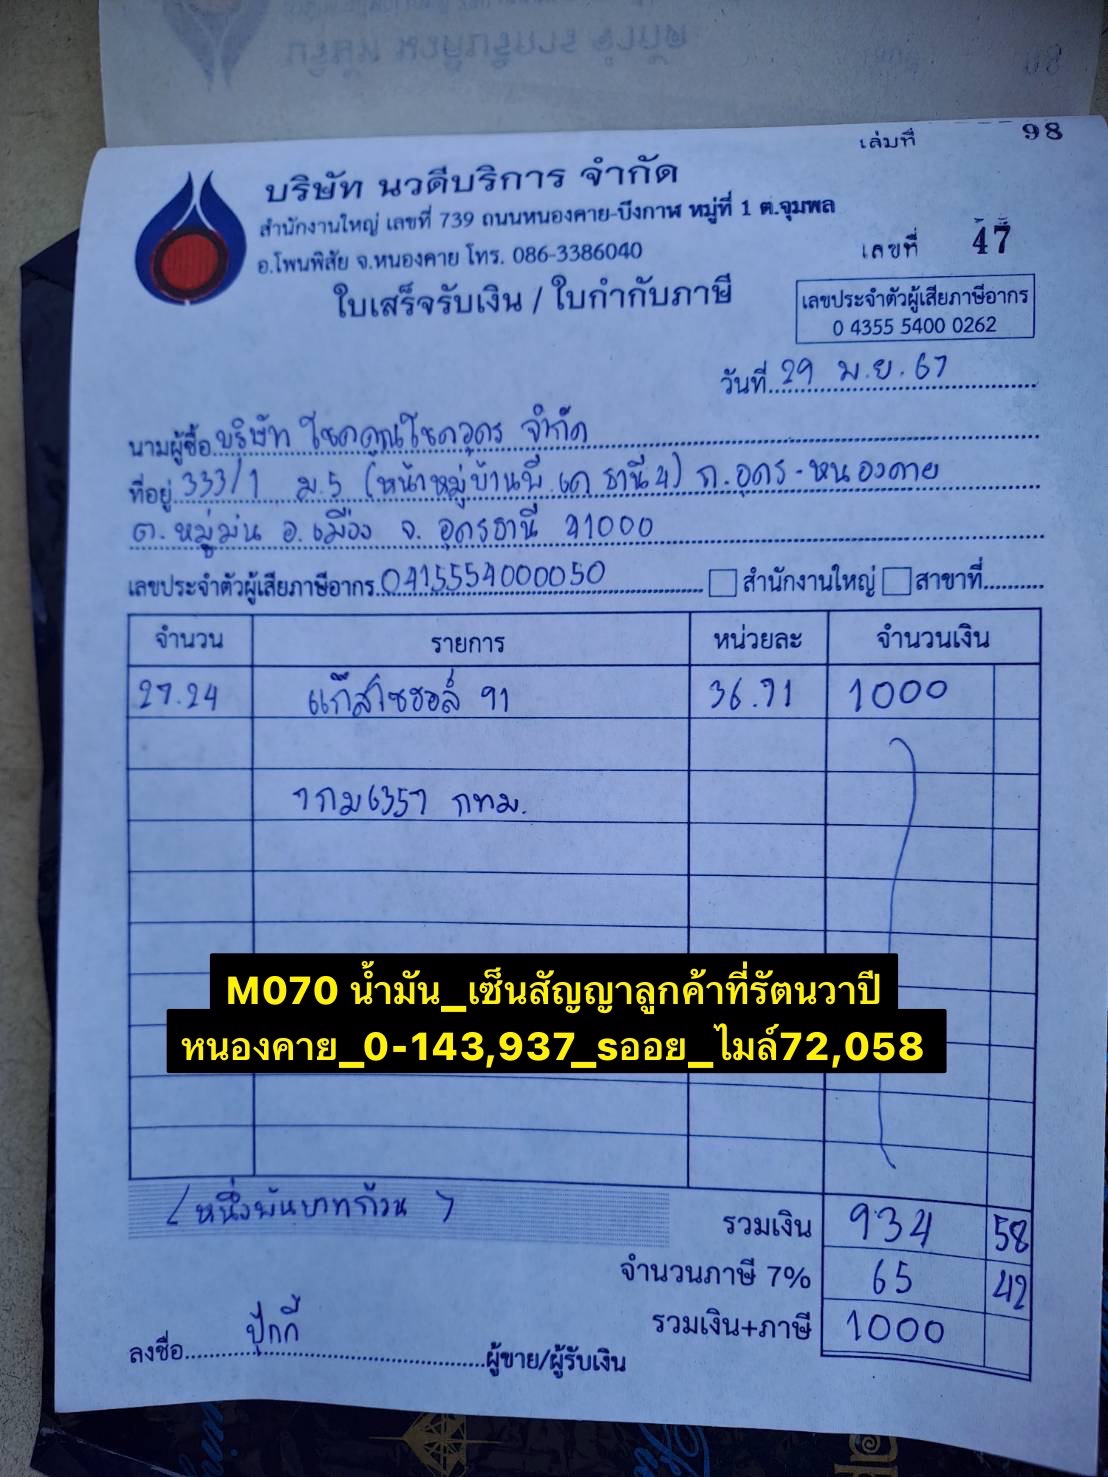 เล่มที่ 98
บริษัท นวดีบริการ จำกัด
สำนักงานใหญ่ เลขที่ 739 ถนนหนองคาย-บึงกาฬ หมู่ที่ 1 ต.จุมพล
อ.โพนพิสัย จ.หนองคาย โทร. 086-3386040
เลขที่ 47
ใบเสร็จรับเงิน / ใบกำกับภาษี
เลขประจำตัวผู้เสียภาษีอากร
0 4355 5400 0262
วันที่ 29 ม.ย. 67
นามผู้ซื้อ บริษัท โชคคูณโชคอุดร จำกัด
ที่อยู่ 333/1 ม.5 (หน้าหมู่บ้านพี เค ธานี 4) ถ.อุดร-หนองคาย
ต.หมู่ม่น อ.เมือง จ.อุดรธานี 41000
เลขประจำตัวผู้เสียภาษีอากร 0415554000050 สำนักงานใหญ่ สาขาที่
จำนวน รายการ หน่วยละ จำนวนเงิน
27.24 แก๊สโซฮอล์ 91 36.71 1000
7กม6357 กทม.
M070 น้ำมัน_เซ็นสัญญาลูกค้าที่รัตนวาปี
หนองคาย_0-143,937_sออย_ไมล์72,058
(หนึ่งพันบาทถ้วน)
รวมเงิน 934 58
จำนวนภาษี 7% 65 42
รวมเงิน+ภาษี 1000
ลงชื่อ ปุ๊กกี้ ผู้ขาย/ผู้รับเงิน